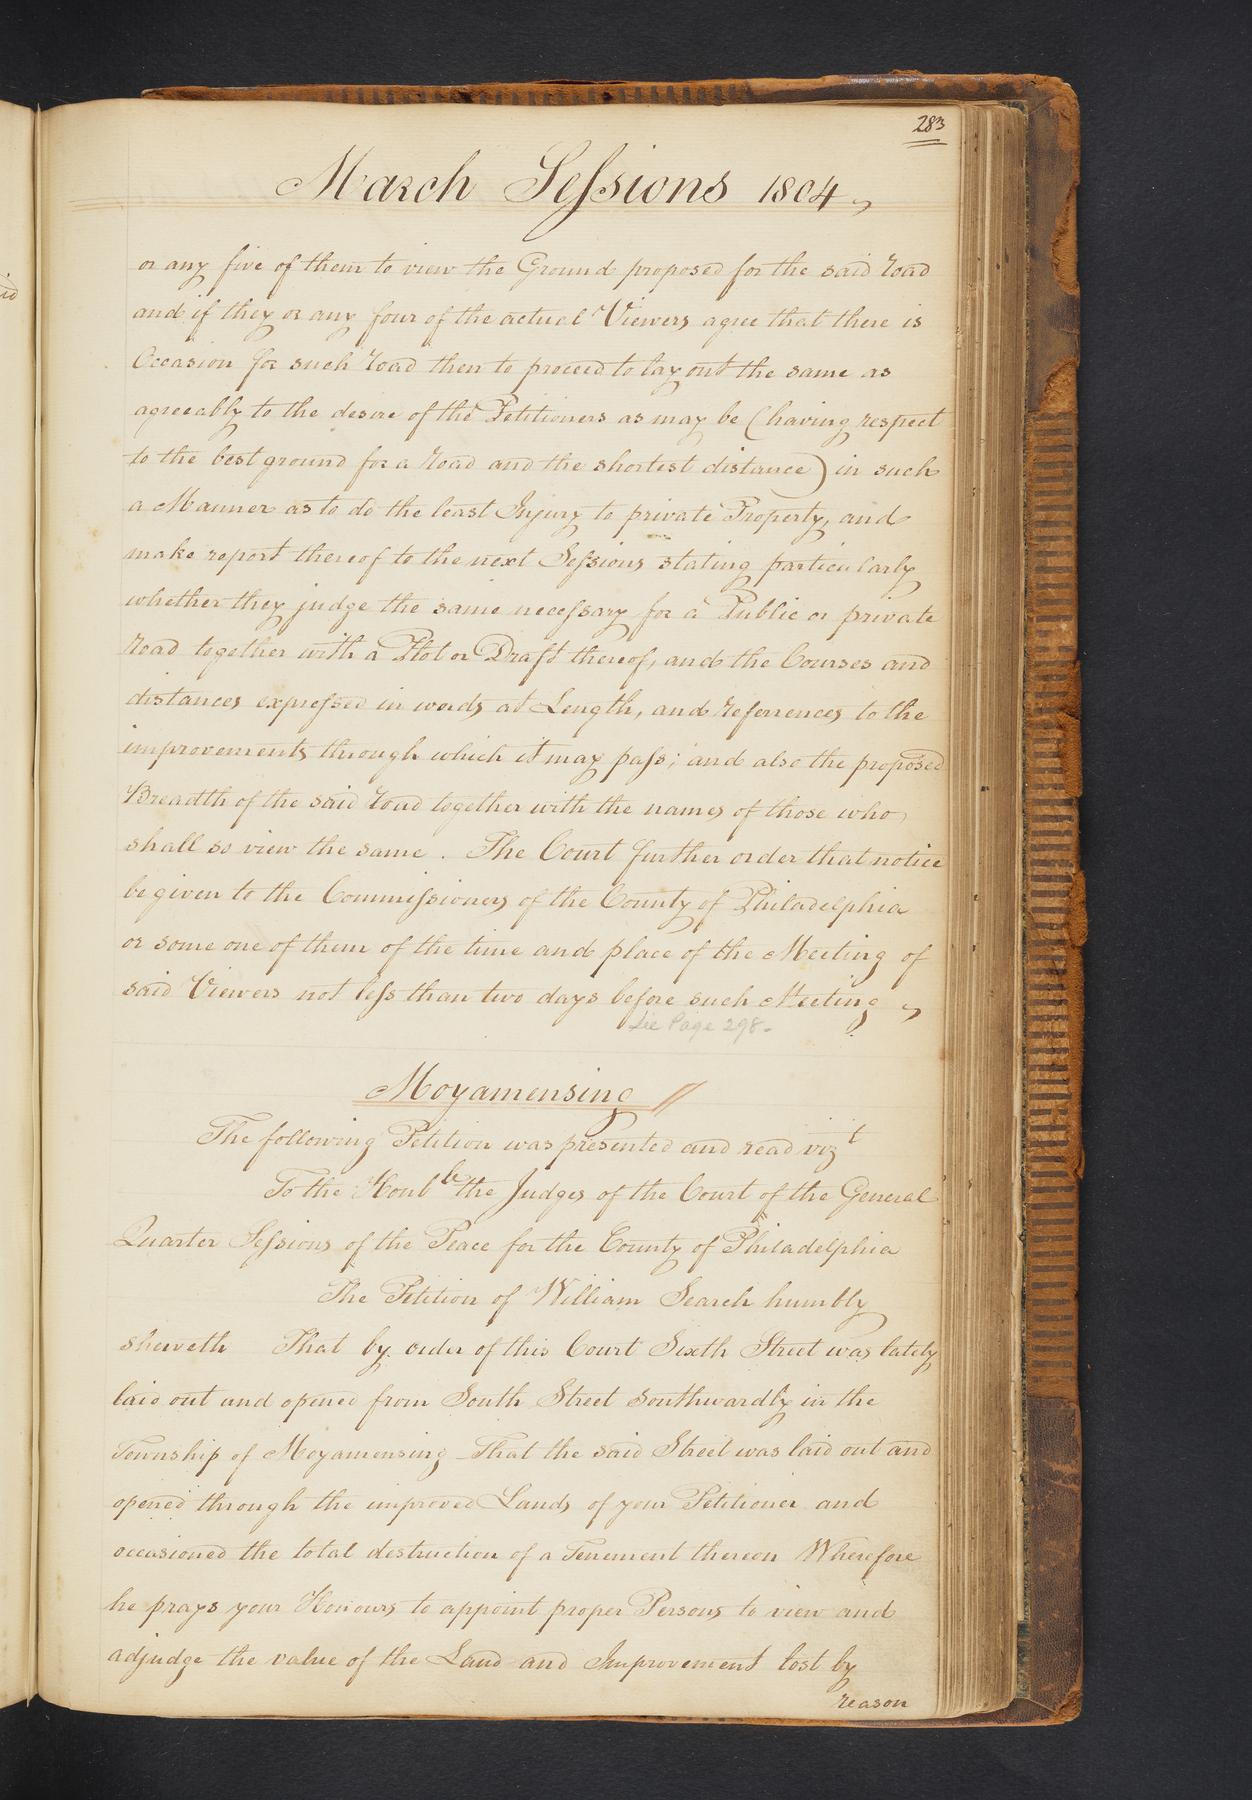 283
March Sessions 1804
or any five of them to view the Ground proposed for the said road
and if they or any four of the actual Viewers agree that there is
Occasion for such road then to proceed to lay out the same as
agreeably to the desire of the Petitioners as may be (having respect
to the best ground for a road and the shortest distance) in such
a Manner as to do the least Injury to private Property, and
make report thereof to the next Sessions stating particularly
whether they judge the same necessary for a Public or private
road together with a Plot or Draft thereof, and the Courses and
distances expressed in words at Length, and references to the
improvements through which it may pass; and also the proposed
Breadth of the said road together with the names of those who
shall so view the same. The Court further order that notice
be given to the Commissioners of the County of Philadelphia
or some one of them of the time and place of the Meeting of
said Viewers not less than two days before such Meeting
See Page 298.
Moyamensing //
The following Petition was presented and read vizt
To the Honble the Judges of the Court of the General
Quarter Sessions of the Peace for the County of Philadelphia
The Petition of William Search humbly
sheweth That by order of this Court Sixth Street was lately
laid out and opened from South Street Southwardly in the
Township of Moyamensing - That the said Street was laid out and
opened through the improved Lands of your Petitioner and
occasioned the total destruction of a Tenement thereon Wherefore
he prays your Honours to appoint proper Persons to view and
adjudge the value of the Land and Improvement lost by
reason